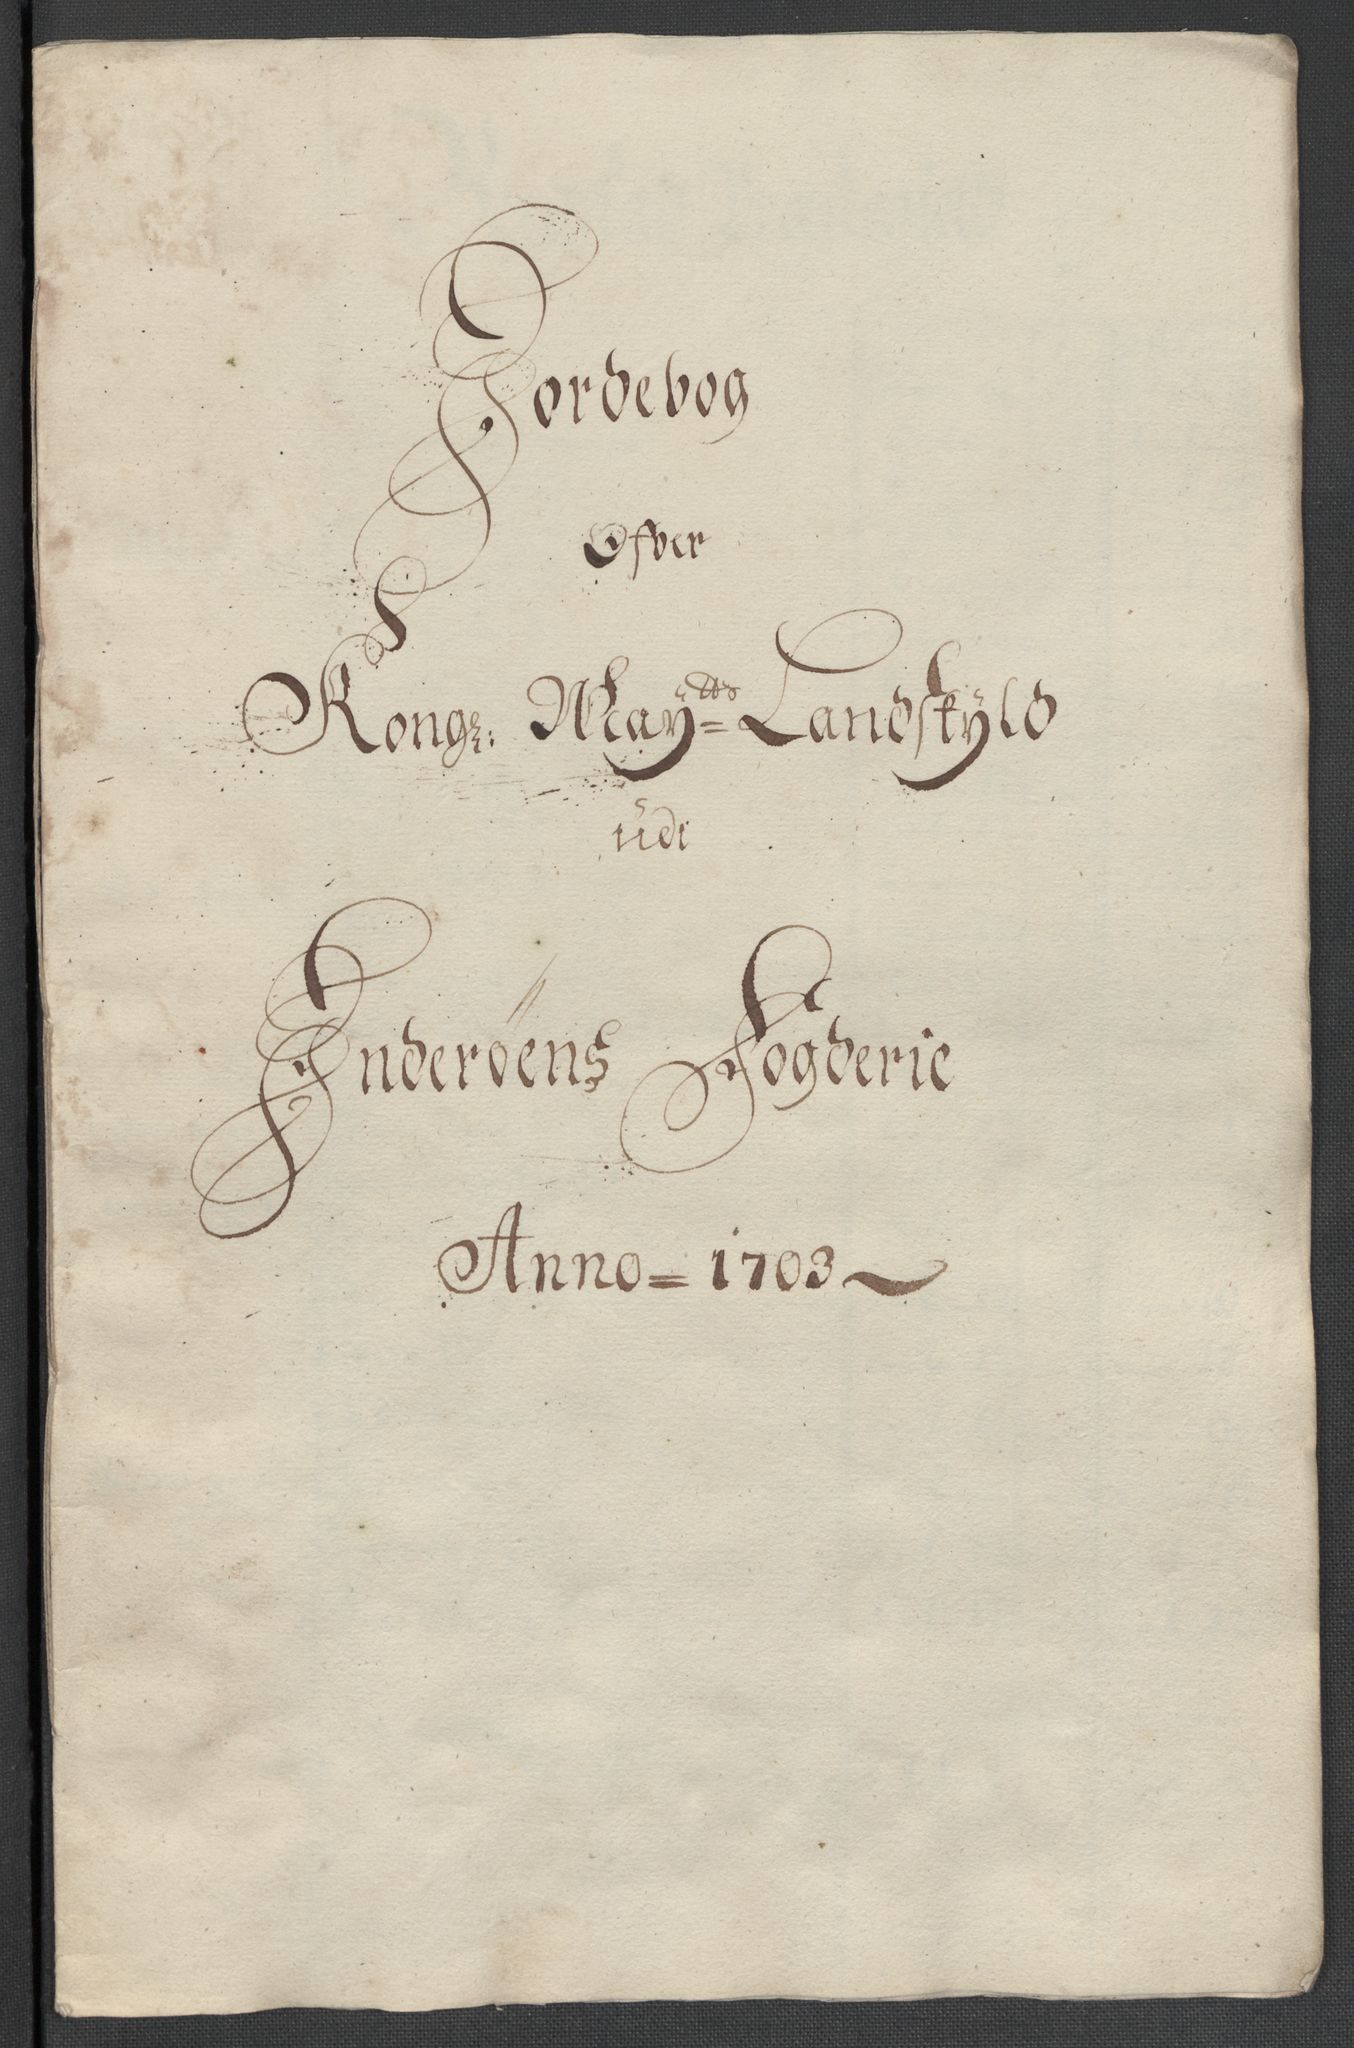 Jordebog
Ofver
Kong: Mayttz= Landskyld
udi
Inderöens Fogderie
Anno = 1703